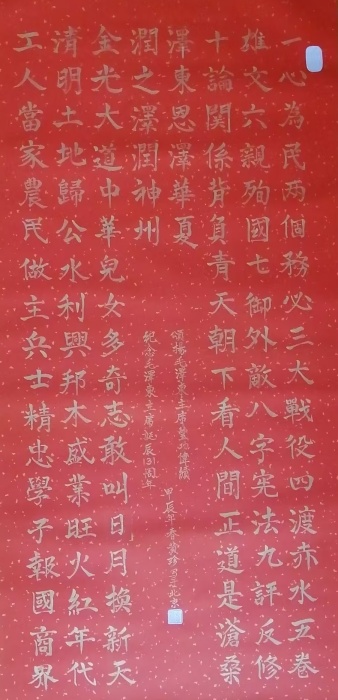 一心為民两個務必三大戰役四渡赤水五卷
雄文六親殉國七御外敵八字宪法九評反修
十論関係背負青天朝下看人間正道是滄桑
澤東思澤華夏
潤之澤潤神州
金光大道中華兒女多奇志敢叫日月換新天
清明土地歸公水利興邦木盛業旺火紅年代
工人當家農民做主兵士精忠學子報國商界
頌揚毛澤東主席豐功偉績
紀念毛澤東主席誕辰131周年
甲辰年春黄北京